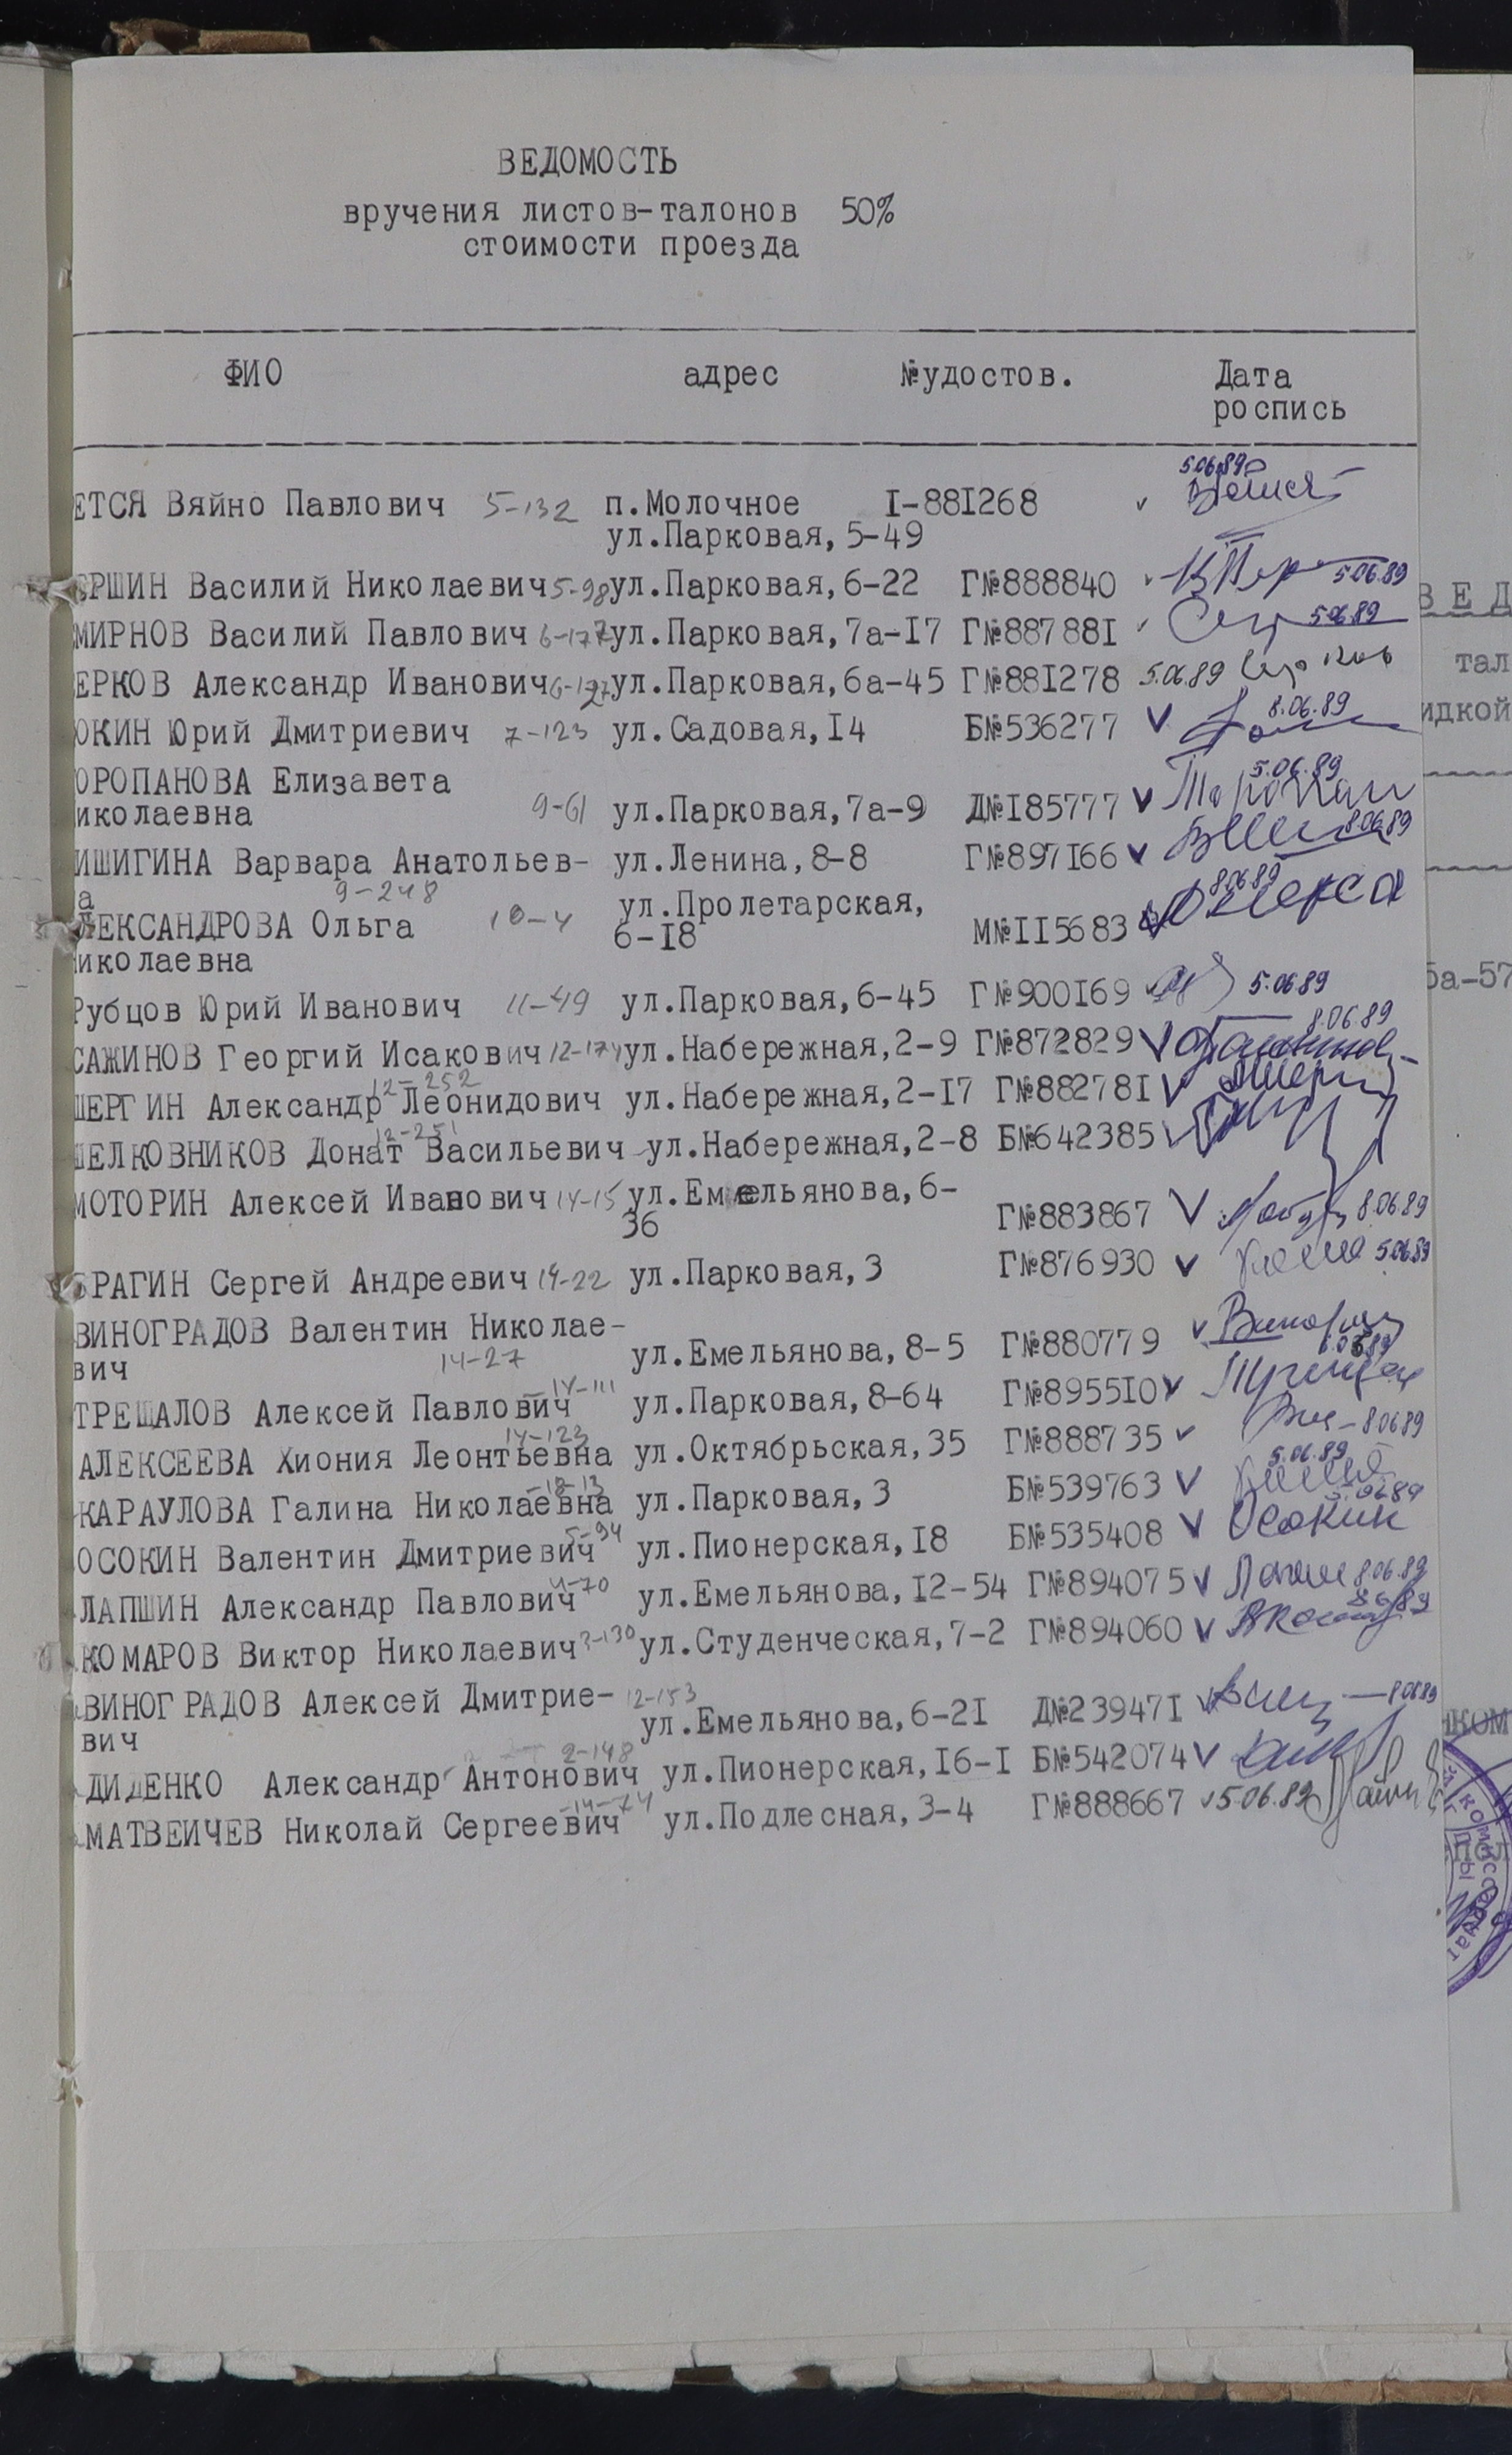 ВЕДОМОСТЬ
вручения листов-талонов 50%
стоимости проезда
ФИО адрес №удостов. Дата
роспись
5.06.89
ЕТСЯ Вяйно Павлович 5-132 п.Молочное I-88I268
ул.Парковая,5-49
ЕРШИН Василий Николаевич 5-98 ул.Парковая,6-22 Г№888840 5.06.89
МИРНОВ Василий Павлович ул.Парковая,7а-I7 Г№88788I 5.06.89
ЕРКОВ Александр Иванович ул.Парковая,6а-45 Г№88I278 5.06.89
ЮКИН Юрий Дмитриевич 7-123 ул.Садовая,I4 Б№536277 8.06.89
ОРОПАНОВА Елизавета 5.06.89
иколаевна 9-61 ул.Парковая,7а-9 Д№I85777
ИШИГИНА Варвара Анатольев- ул.Ленина,8-8 Г№897I66 8.06.89
а 9-248 8.06.89
ЛЕКСАНДРОВА Ольга 10-4 ул.Пролетарская,
6-I8 М№II5683
иколаевна
Рубцов Юрий Иванович 11-49 ул.Парковая,6-45 Г№900I69 5.06.89
САЖИНОВ Георгий Исакович 12-174 ул.Набережная,2-9 Г№872829 8.06.89
12-252
ШЕРГИН Александр Леонидович ул.Набережная,2-I7 Г№88278I
12-251
ШЕЛКОВНИКОВ Донат Васильевич ул.Набережная,2-8 Б№642385
МОТОРИН Алексей Иванович 14-15 ул.Емельянова,6-
36 Г№883867 8.06.89
БРАГИН Сергей Андреевич 14-22 ул.Парковая,3 Г№876930 5.06.89
ВИНОГРАДОВ Валентин Николае-
вич 14-27 ул.Емельянова,8-5 Г№880779
14-111
ТРЕЩАЛОВ Алексей Павлович ул.Парковая,8-64 Г№8955I0
14-123
АЛЕКСЕЕВА Хиония Леонтьевна ул.Октябрьская,35 Г№888735 8.06.89
18-13 5.06.89
КАРАУЛОВА Галина Николаевна ул.Парковая,3 Б№539763
5-94
ОСОКИН Валентин Дмитриевич ул.Пионерская,I8 Б№535408 Осокин
ЛАПШИН Александр Павлович ул.Емельянова,I2-54 Г№894075 8.06.89
КОМАРОВ Виктор Николаевич ул.Студенческая,7-2 Г№894060 8.06.89
ВИНОГРАДОВ Алексей Дмитрие- 12-153
вич ул.Емельянова,6-2I Д№23947I 8.06.89
2-148
ДИДЕНКО Александр Антонович ул.Пионерская,I6-I Б№542074
14-74
МАТВЕИЧЕВ Николай Сергеевич ул.Подлесная,3-4 Г№888667 5.06.89
ВЕД
тал
идкой
6а-57